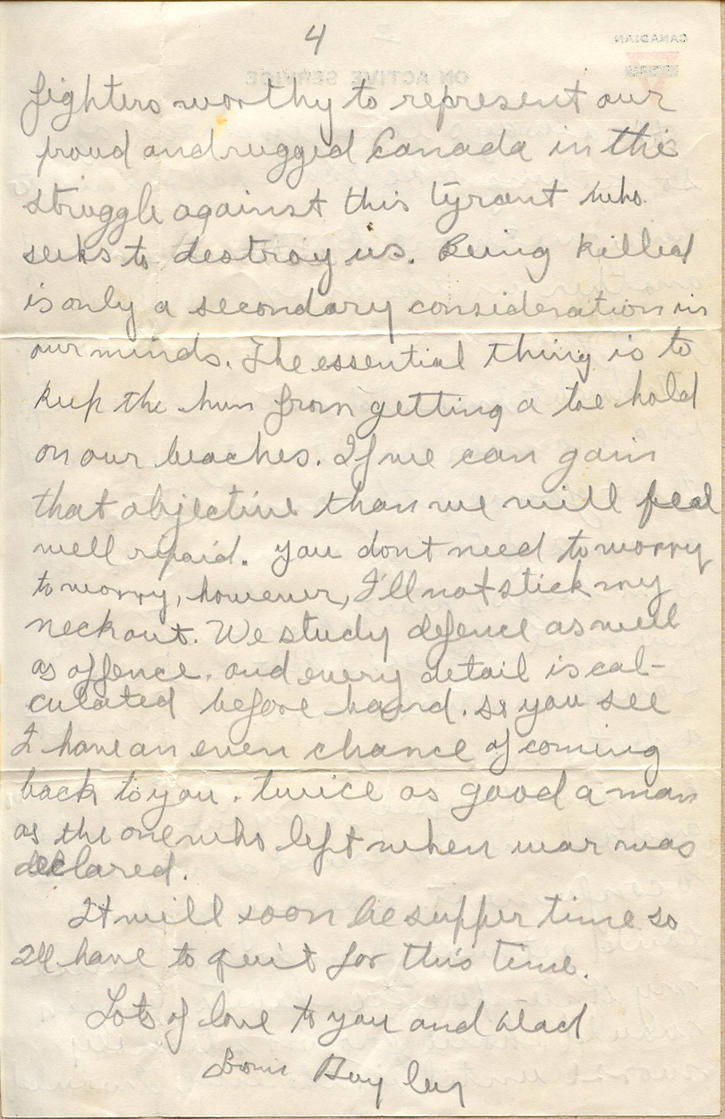 4
CANADIAN
ON ACTIVE SERVICE
fighters worthy to represent our
proud and rugged Canada in the
struggle against this tyrant who
seeks to destroy us. Being killed
is only a secondary consideration in
our minds. The essential thing is to
keep the hun from getting a toe hold
on our beaches. If we can gain
that objective than we will feel
well repaid. You dont need to worry
to worry, however, I'll not stick my
neck out. We study defence as well
as offence, and every detail is cal-
culated before hand. so you see
I have an even chance of coming
back to you. twice as good a man
as the one who left when war was
declared.
It will soon be supper time so
I'll have to quit for this time.
Lots of love to you and Dad